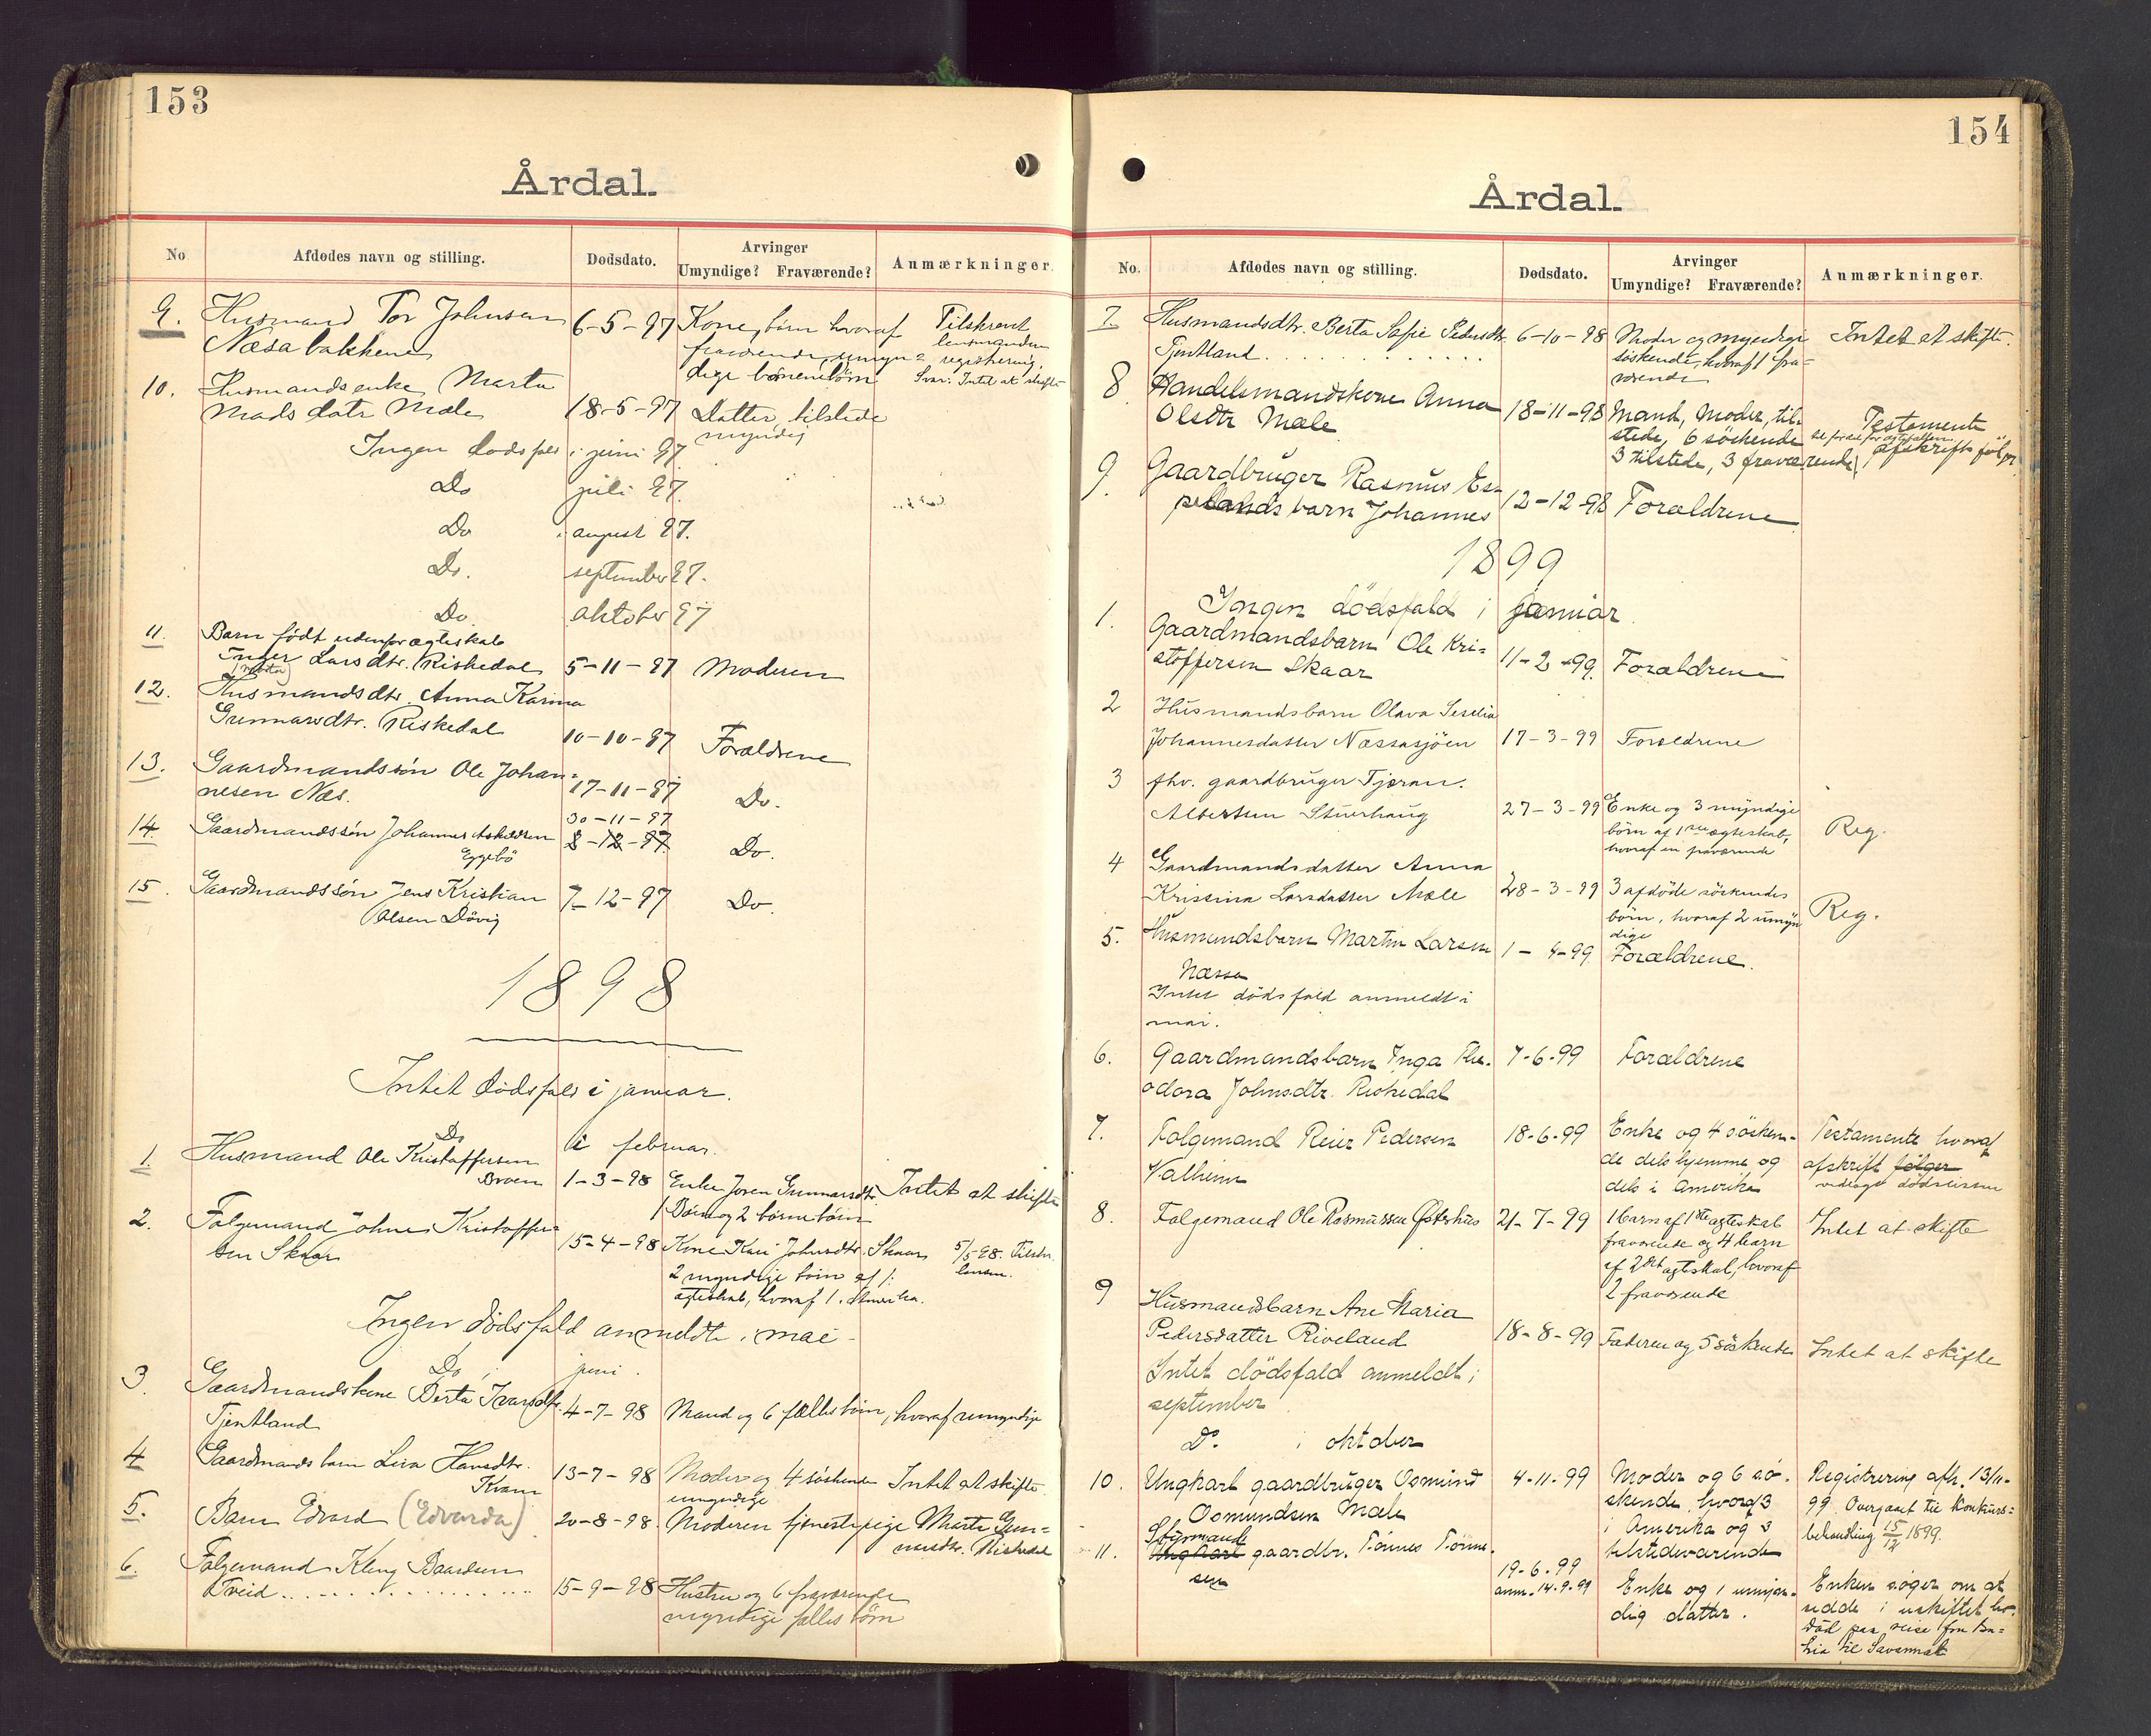 153
Årdal.
No
Afdødes navn og stilling.
Dødsdato.
Arvinger
Umyndige? Fraværende?
Anmærkninger.
9. Husmand Tor Johnsen 6-5-97 Kone, børn hvoraf Tilskrevet
Næsabakken fraværende, umyn= lensmanden registrering.
dige børnebørn Svar: Intet at skifte
10. Husmandsenke Marta
Madsdatr Mæle 18-5-97 Datter, tilstede
myndig
Ingen dødsfald i juni 97
Do juli 97.
Do i august 97.
Do. september 97.
Do. oktober 97
11. Barn født udenfor ægteskab
Inger Larsdtr. Riskedal 5-11-97 Moderen
12. Husmandsdtr. Anna Karina
Gunnarsdtr. Riskedal 10-10-97 Forældrene
13. Gaardmandssøn Ole Johan=
nesen Næs. 17-11-97 Do.
30-11-97
14. Gaardmandssøn Johannes Askildsen 8-12-97 Do.
Eggebø
15. Gaardmandssøn Jens Kristian 7-12-97 Do.
Olsen Døvig
1898
Intet dødsfald i januar.
Do i februar.
1. Husmand Ole Kristoffersen
1-3-98 Enke Joren Gunnarsdtr. Intet at skifte
1 Børn og 2 børnebørn
2. Følgemand Johnes Kristoffer=
sen Skaar 15-4-98 Kone Kari Johnsdtr. Skaar 5/5 98. Tilskr.
2 myndige børn af 1. lensm.
ægteskab, hvoraf 1 i Amerika.
Ingen dødsfald anmeldt i mai
Do i juni.
3. Gaardmandskone Berta Ivarsdtr. 4-7-98 Mand og 6 fælles børn, hvoraf umyndige
Tjentland
4 Gaardmandsbarn Lisa Hansdtr. 13-7-98 Moder og 4 søskende Intet at skifte
Kvam umyndige
5. Barn Edvard (Edvarda) 20-8-98. Moderen tjenestepige Marta Gun=
narsdtr. Riskedal
6. Følgemand Kleng Baardsen
Tveid 15-9-98 Hustru og 6 fraværende
myndige fælles børn
154
Årdal.
No.
Afdødes navn og stilling.
Dødsdato.
Arvinger
Umyndige? Fraværende?
Anmærkninger.
7. Husmandsdtr. Berta Sofie Pedersdtr. 6-10-98 Moder og myndige Intet at skifte.
Tjentland søskende, hvoraf 1 fra=
værende
8. Handelsmandskone Anna 18-11-98 Mand, Moder, til-
Olsdtr Mæle stede, 6 søskende Testamente
3 tilstede, 3 fraværende, afskrift følger
9. Gaardbruger Rasmus Es-
pelands barn Johannes 12-12-98 Forældrene
1899
Ingen dødsfald i januar
1. Gaardmandsbarn Ole Kri=
stoffersen Skaar 11-2-99. Forældrene
2 Husmandsbarn Olava Serelia
Johannesdatter Næssasjøen 17-3-99 Forældrene
3 fhv. gaardbruger Tjøran.
Albertsen Stuerhaug 27-3-99 Enke og 3 myndige Reg.
børn af 1ste ægteskab,
hvoraf en fraværende
4 Gaardmandsdatter Anna
Krissina Larsdatter Mæle 28-3-99 3 afdøde søskendes Reg.
børn, hvoraf 2 umyn
dige
5. Husmandsbarn Martin Larsen 1-4-99 Forældrene.
Næssa
Intet dødsfald anmeldt i
mai.
6. Gaardmandsbarn Inga The- 7-6-99 Forældrene
odora Johnsdtr. Riskedal
7. Følgemand Reier Pedersen 18-6-99 Enke og 4 søsken- Testamente hvoraf
Valheim de dels hjemme og afskrift følger
dels i Amerika vedlagt dødslisten
8. Følgemand Ole Rasmussen Østerhus 21-7-99 1 barn af 1ste ægteskab Intet at skifte
fraværende og 4 barn
af 2det ægteskab, hvoraf
2 fraværende
9 Husmandsbarn Ane Maria
Pedersdatter Riveland 18-8-99 Faderen og 5 søskende Intet at skifte
Intet dødsfald anmeldt i
september
Do. i oktober
10. Ungkarl gaardbruger Osmund 4-11-99 Moder og 6 sø- Registrering afh. 13/11-
Osmundsen Mæle skende, hvoraf 3 99. Overgaaet til konkurs=
i Amerika og 3 behandling 15/12 1899.
tilstedeværende
Styrmand
11. Ungkarl gaardbr. Tønnes Tønne- 19-6-99
sen anm. 14-9-99 Enke og 1 umyn- Enken søger om at
dig datter. sidde i uskiftet bo.
Død paa reise fra Ba=
hia til Savannah